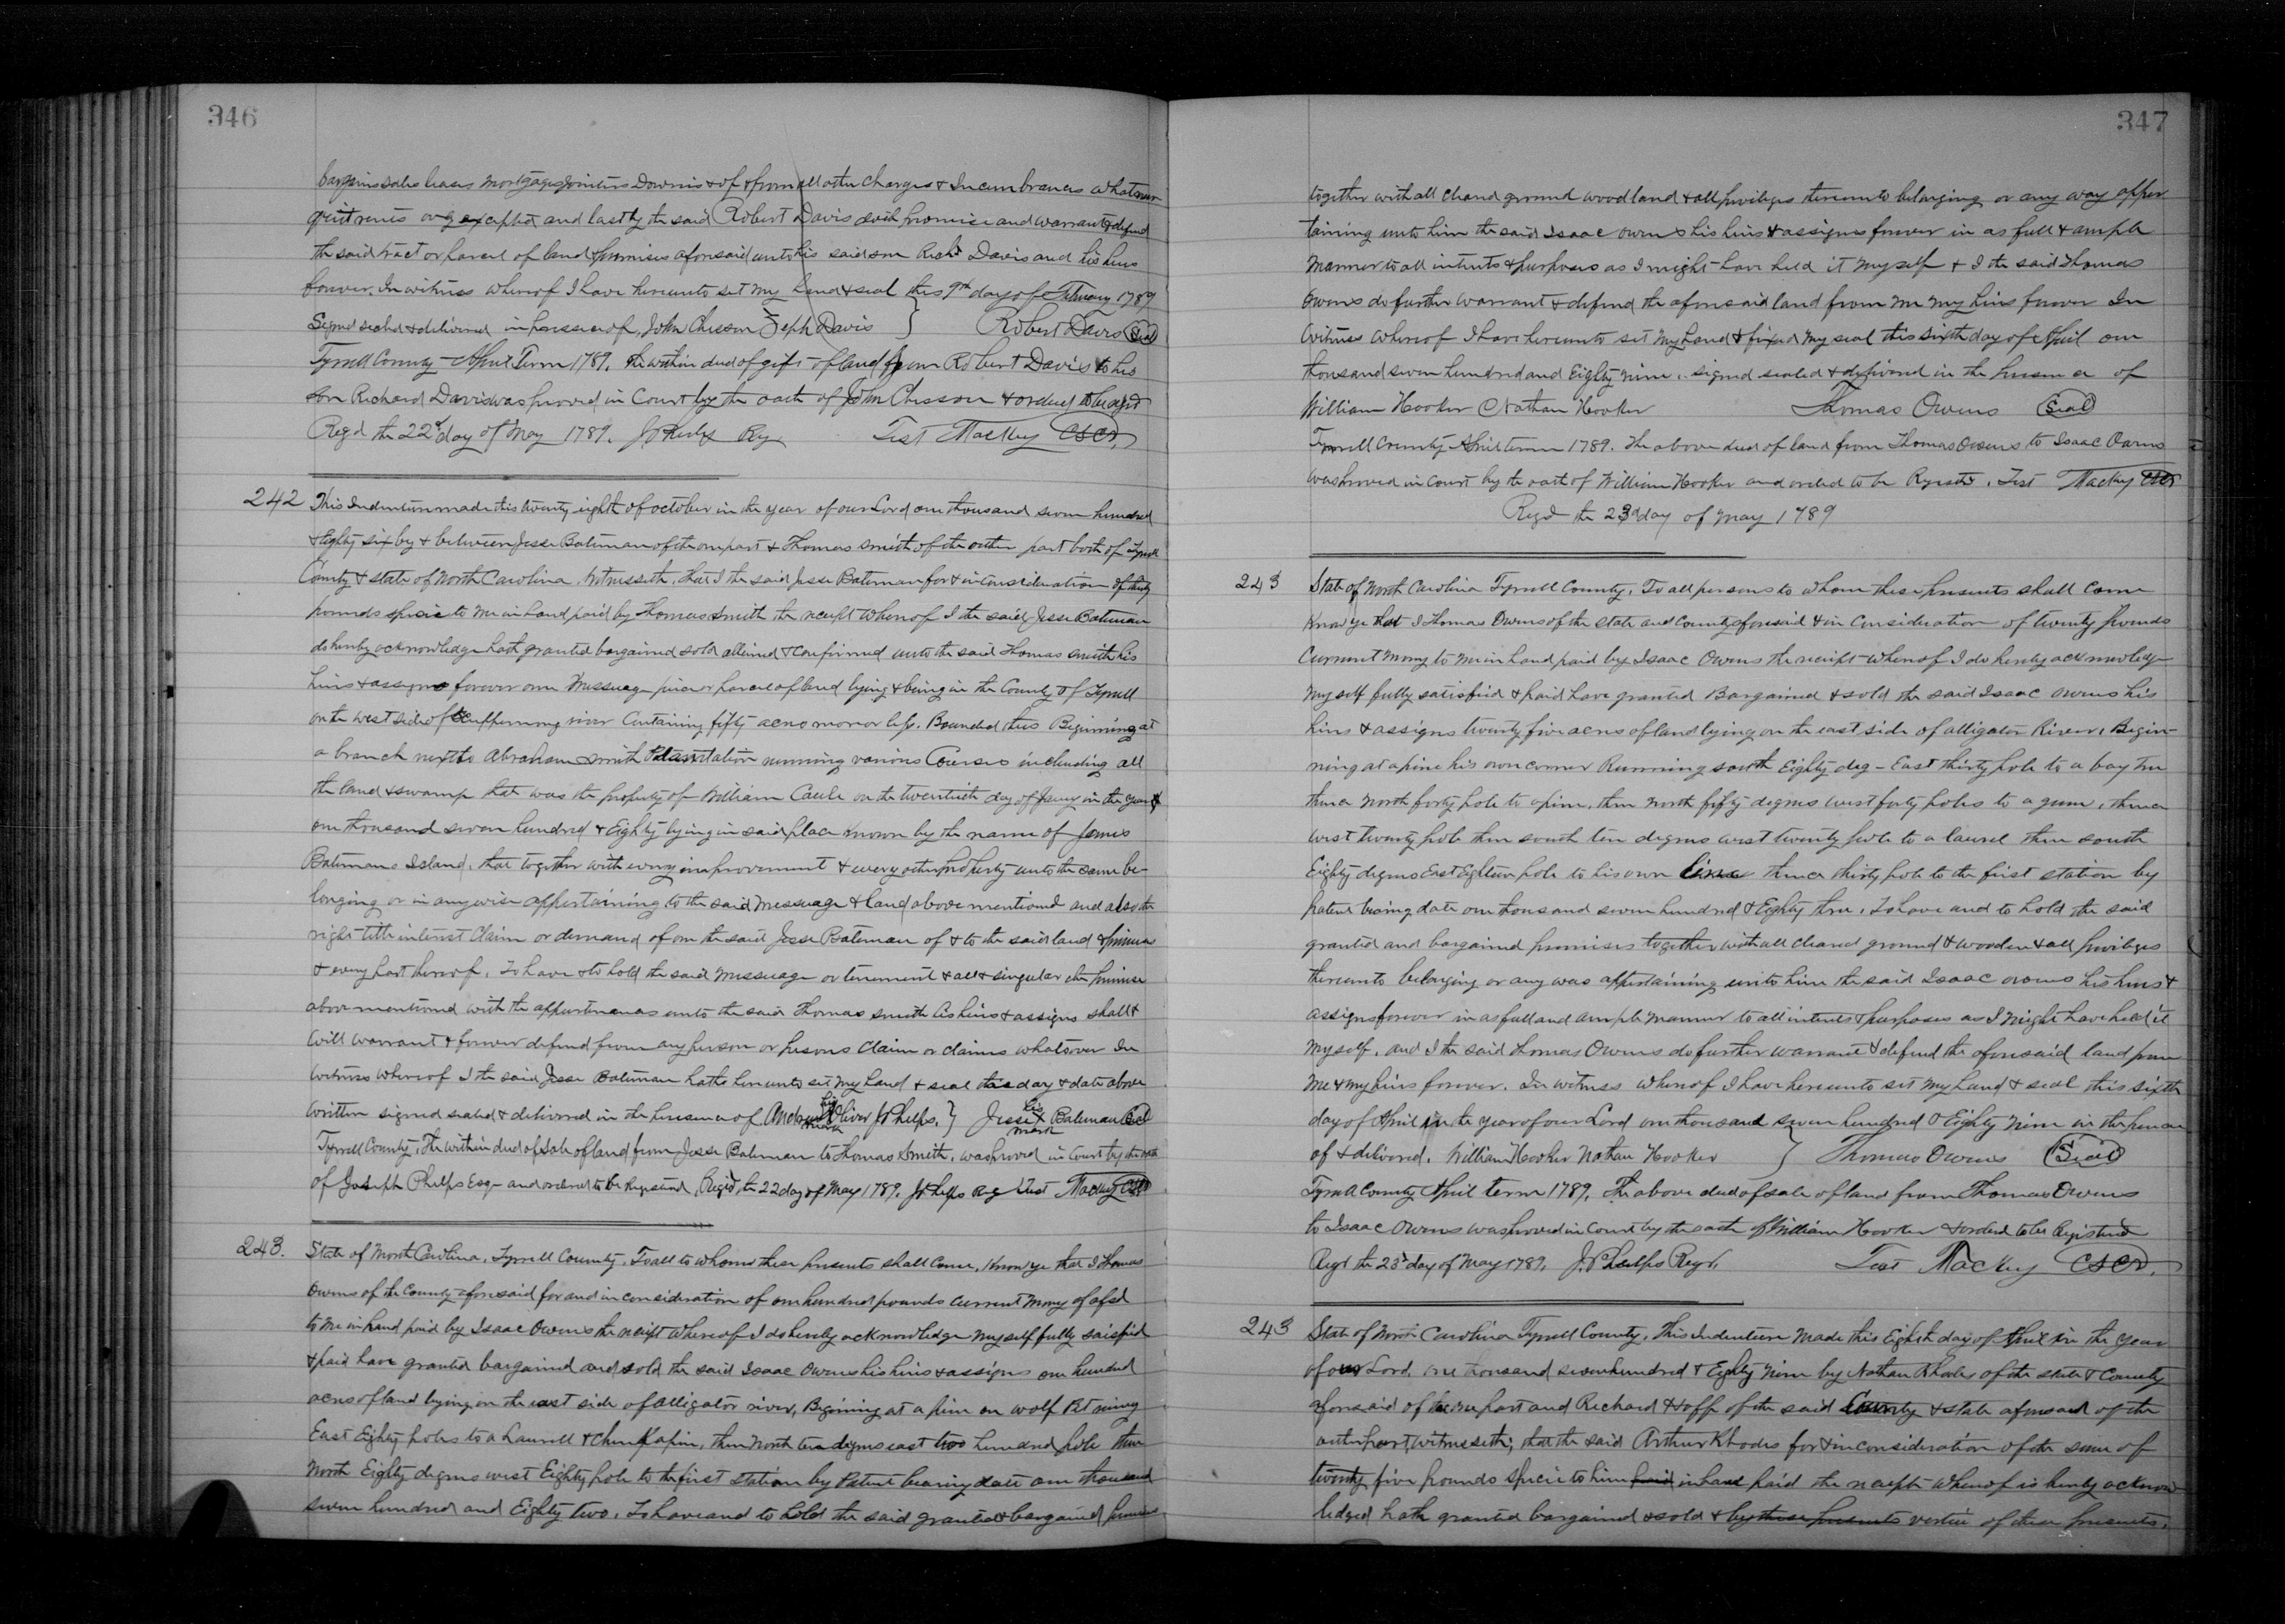 346
bargains sales leases mortgages Jointers Dowris & of & from all other charges & Incumbrances whatsoever
quitrents only excepted and lastly the said Robert Davis doth promise and warrant & defend
the said tract or parcel of land & premises aforesaid unto his said son Richd Davis and his heirs
forever. In witness whereof I have hereunto set my hand & seal this 9th day of February 1789
Signed sealed & delivered in presence of, John Chesson Zeph Davis } Robert Davis (Seal)
Tyrrell County April Term 1789. The within deed of gift of land from Robert Davis to his
Son Richard Davis was proved in Court by the oath of John Chesson & ordered to be regd
Regd the 22d day of May 1789. J Phelps Reg. Test Mackey CSCD
242 This Indenture made this twenty eighth of october in the year of our Lord one thousand seven hundred
& Eighty six by & between Jesse Bateman of the one part & Thomas Smith of the other part both of Tyrrell
County & state of North Carolina, witnesseth, that I the said Jesse Bateman for & in consideration of thirty
pounds specie to me in hand paid by Thomas Smith the receipt whereof I the said Jesse Bateman
do hereby acknowledge hath granted bargained sold aliened & confirmed unto the said Thomas Smith his
heirs & assigns forever one messuage piece or parcel of land lying & being in the County of Tyrrell
on the west side of Scuppernong river Containing fifty acres more or less. Bounded thus Beginning at
a branch next to Abraham Smith Plantation running various Courses including all
the land & swamp that was the property of William Caule on the twentieth day of Jany in the year of
one thousand seven hundred & Eighty lying in said place known by the name of James
Batemans Island. that together with every improvement & every other property unto the same be-
longing or in anywise appertaining to the said messuage & land above mentioned and also the
right title interest Claim or demand of on the said Jesse Bateman of & to the said land & premises
& every part thereof. To have & to hold the said messuage or tenement & all & singular other premises
above mentioned with the appurtenances unto the said Thomas Smith his heirs & assigns shall &
will warrant & forever defend from any person or persons Claim or claims whatsoever In
witness whereof I the said Jesse Bateman hath hereunto set my hand & seal this day & date above
written signed sealed & delivered in the presence of Andrew his mark Oliver J Phelps. } Jesse his X mark Bateman Seal
Tyrrell County, The within deed of sale of land from Jesse Bateman to Thomas Smith, was proved in Court by the oath
of Joseph Phelps Esq and ordered to be Registered, Regd the 22 day of May 1789. J Phelps Reg Test Mackey CSCD
243. State of North Carolina, Tyrrell County, To all to whom these presents shall come, know ye that I Thomas
Owens of the County aforesaid for and in consideration of one hundred pounds current money of afsd
to me in hand paid by Isaac Owens the receipt whereof I do hereby acknowledge myself fully saisfied
& paid have granted bargained and sold the said Isaac Owens his heirs & assigns one hundred
acres of land lying on the east side of alligator river, Begining at a pine on wolf Pit ruing
East Eighty poles to a Laurell & Chinkapin, then North ten degrees east two hundred pole then
North Eighty degrees west Eighty pole to the first station by Patent bearing date one thousand
seven hundred and Eighty two. To have and to hold the said granted & bargained premises
347
together with all cleand ground woodland & all privileges thereunto belonging or any way apper
taining unto him the said Isaac Owens his heirs & assigns forever in as full & ample
manner to all intents & purposes as I might have held it myself & I the said Thomas
Owens do further warrant & defend the aforesaid land from me my heirs forever In
witness whereof I have hereunto set my hand & fixed my seal this sixth day of April one
thousand seven hundred and Eighty nine. signed sealed & delivered in the presence of
William Hooker Nathan Hooker Thomas Owens (Seal)
Tyrrell County April term 1789. The above deed of land from Thomas Owens to Isaac Owens
was proved in court by the oath of William Hooker and ordered to be Registd. Test Mackey CSCD
Regd the 23d day of May 1789
243 State of North Carolina Tyrrell County, To all persons to whom these presents shall come
know ye that I Thomas Owens of the state and County aforesaid & in consideration of twenty pounds
Current money to me in hand paid by Isaac Owens the receipt whereof I do hereby acknowledge
myself fully satisfied & paid have granted Bargained & sold the said Isaac Owens his
heirs & assigns twenty five acres of land lying on the east side of alligator River, Begin-
ning at a pine his own corner Running south Eighty deg - East thirty pole to a bay tree
thence North forty pole to a pine, then north fifty degrees west forty poles to a gum, thence
west twenty pole then south ten degrees west twenty pole to a laurel then south
Eighty degrees East Eighteen pole to his own line thence thirty pole to the first station by
patent bearing date one thousand seven hundred & Eighty three. To have and to hold the said
granted and bargained premises together with all cleared ground & wooden & all privileges
thereunto belonging or any was appertaining unto him the said Isaac Owens his heirs &
assigns forever in as full and ample manner to all intents & purposes as I might have held it
myself. and I the said Thomas Owens do further warrant & defend the aforesaid land from
me & my heirs forever. In witness whereof I have hereunto set my hand & seal this sixth
day of April in the year of our Lord one thousand seven hundred & Eighty Nine in the presence
of & delivered. William Hooker Nathan Hooker } Thomas Owens (Seal)
Tyrrell County April term 1789. The above deed of sale of land from Thomas Owens
to Isaac Owens was proved in Court by the oath of William Hooker & ordered to be Registered
Regd the 23d day of May 1789. J. Phelps Regr. Test Mackey CSCD.
243 State of North Carolina Tyrrell County, This Indenture made this Eighth day of April in the year
of our Lord. one thousand seven hundred & Eighty Nine by Nathan Rhodes of the state & County
aforesaid of the one part and Richard Hoff of the said County & state aforesaid of the
other part, witnesseth; that the said Arthur Rhodes for & in consideration of the sum of
twenty five pounds specie to him paid in hand paid the receipt whereof is hereby acknow
ledged hath granted bargained & sold & by these presents vertue of these presents.